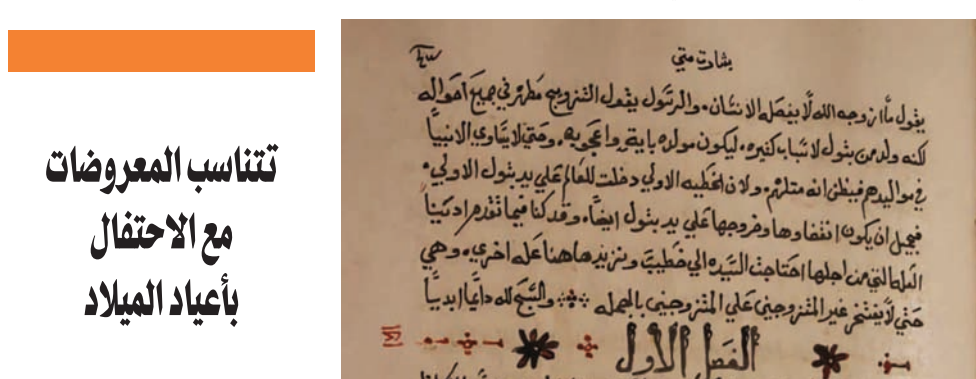 تتناسب المعروضات
مع الاحتفال
بأعياد الميلاد
بشارت متي
يقول ما ازوجه الله لا يفصله الانسان. والرسول يقول التزويج مطهر في جميع احواله
لكنه ولد من بتول لاسباب كثيره. ليكون مولده باية واعجوبه. وحتي لا يساوي الانبيا
في مواليدهم فيظن انه مثلهم. ولان الخطيه الاولي دخلت للعالم علي يد بتول الاولي.
ان يكون انتفاوها وخروجها علي يد بتول ايضا. وقد كنا فيما تقدم
التي من اجلها احتاجت السيده الي خطيب ونزيدها هاهنا عله اخري. وهي
حتي لا يفتخر غير المتزوجين علي المتزوجين بالجمله والسبح لله دايما ابديا
الفصل الاول